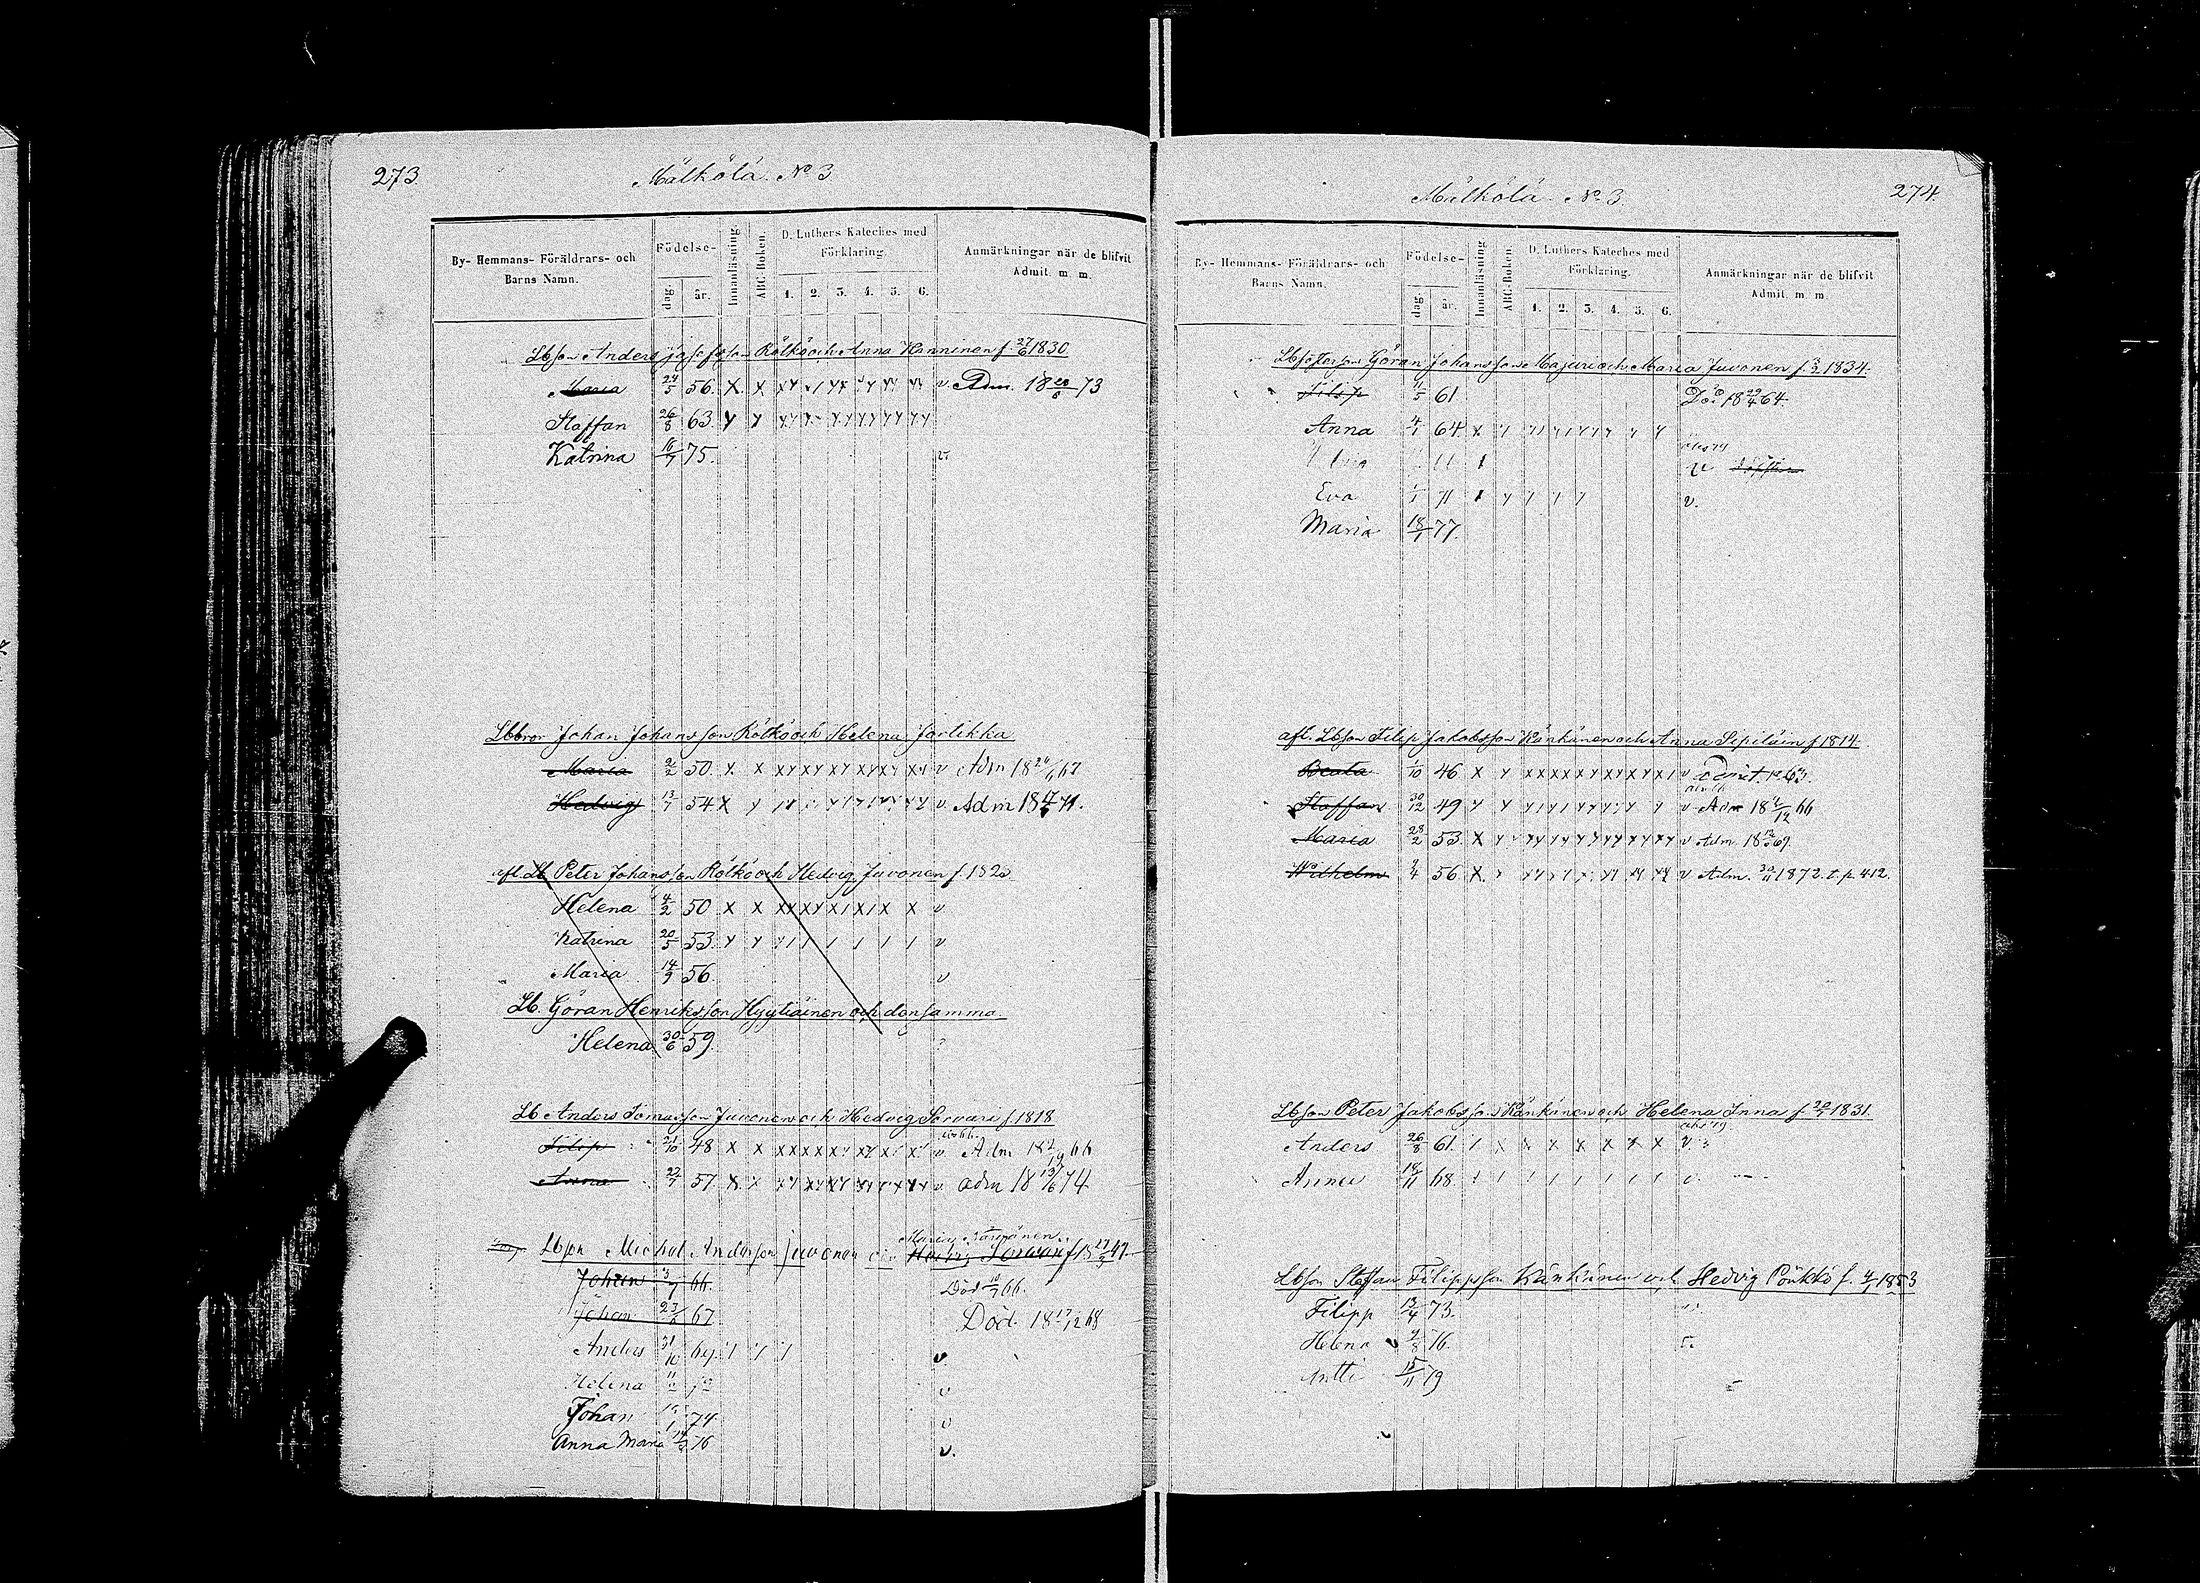 273.
Mälkölä. No 3
By- Hemmans- Föräldrars- och Barns Namn.
Födelse-
dag. år.
Innanläsning
ABC-Boken.
D. Luthers Kateches med Förklaring.
1. 2. 3. 4. 5. 6.
Anmärkningar när de blifvit Admit. m m.
Lbson Anders Josefsson Rölkö och Anna Hänninen f. 27/6 1830.
Maria 24/5 56. v. Adm. 18 20/6 73
Staffan 26/8 63.
Katrina 16/7 75. v
Lbbror Johan Johansson Rölkö och Helena Jorlikka
Maria 2/2 50. v Adm 18 67
Hedvig 13/7 54 v. Adm 18 71.
afl. Lb Peter Johansson Rölkö och Hedvig Juvonen f. 1820
Helena 4/2 50 v
Katrina 20/5 53. v
Maria 14/9 56. v
Lb. Göran Henriksson Hyytiäinen och densamma
Helena 30/6 59.
Lb Anders Tomasson Juvonen och Hedvig Sorvari f. 1818
Filip 21/10 48 v. Adm 18 66
Anna 22/7 57 v adm 18 13/6 74
Lbson Michel Andersson Juvonen och Hedvig Sorvari f 18 47
Maria
Johan 3/7 66. Död 66.
Johan 67. Död. 18 17/12 68
Anders 31/10 69. v
Helena v
Johan 74. v
Anna Maria 76 v.
274.
Mälkölä No 3.
By- Hemmans- Föräldrars- och Barns Namn.
Födelse-
dag år.
Innanläsning
ABC-Boken
D. Luthers Kateches med Förklaring.
1. 2. 3. 4. 5. 6.
Anmärkningar när de blifvit Admit. m m.
Göran Johansson Majuri och Maria Juvonen f. 3/3 1834.
Filip 11/5 61 Död 18 29/4 64.
Anna 4/1 64.
Eva 1/1 71 v.
Maria 18/1 77.
afl. Lbson Filip Jakobsson Känkänen och Anna Sipiläin f 1814.
Beata 1/10 46. v Admit. 63.
Staffan 30/12 49 v Adm 18 66
Maria 28/2 53. v Adm. 18 69.
Wilhelm 2/4 56. v Adm. 1872. t. p. 412.
Lbson Peter Jakobsson Känkänen och Helena Inna f. 1831.
Anders 26/8 61. v
Anna 18/11 68. v.
Lbson Staffan Filippson Känkänen och Hedvig Pönkkö f. 1853
Filipp 13/4 73.
Helena 2/8 76.
Antti 15/11 79